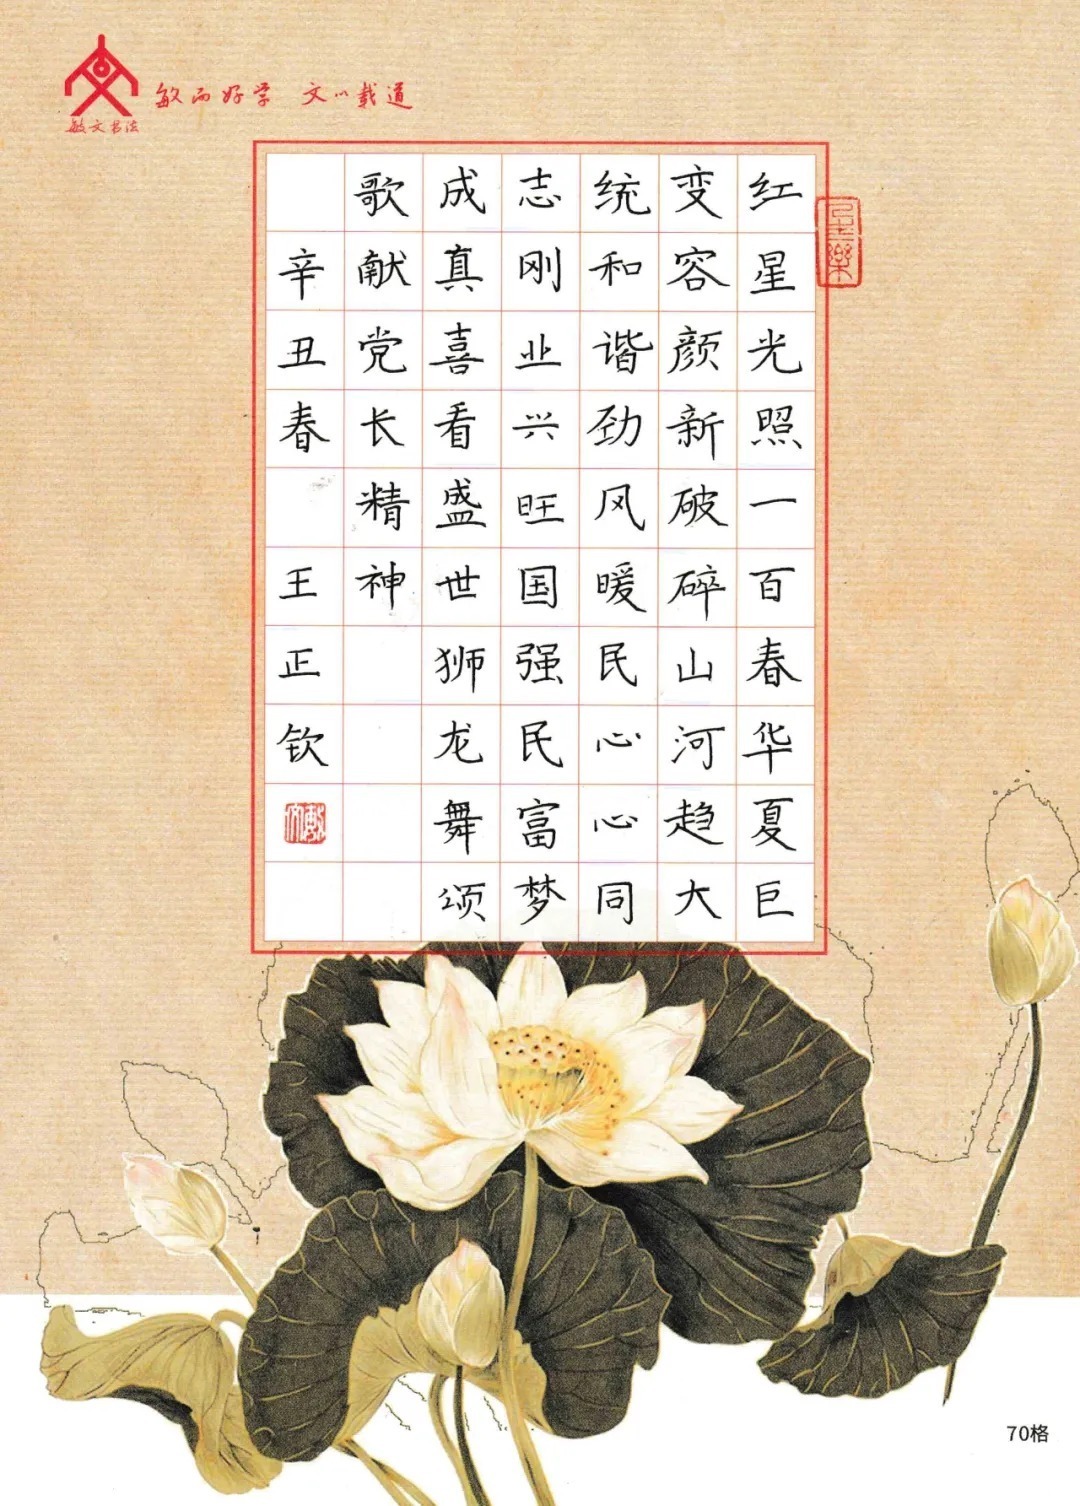 敏而好学 文以载道
敏文书法
红星光照一百春华夏巨
变容颜新破碎山河趋大
统和谐劲风暖民心心同
志刚业兴旺国强民富梦
成真喜看盛世狮龙舞颂
歌献党长精神
辛丑春 王正钦
70格